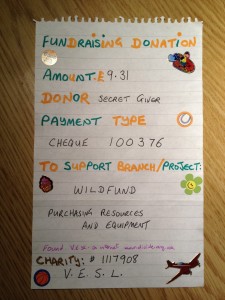 FUNDRAISING DONATION
AMOUNT: £9.31
DONOR SECRET GIVER
PAYMENT TYPE
CHEQUE 100376
TO SUPPORT BRANCH/PROJECT:
WILDFUND
PURCHASING RESOURCES
AND EQUIPMENT
Found
CHARITY: # 1117908
V.E.S.L.